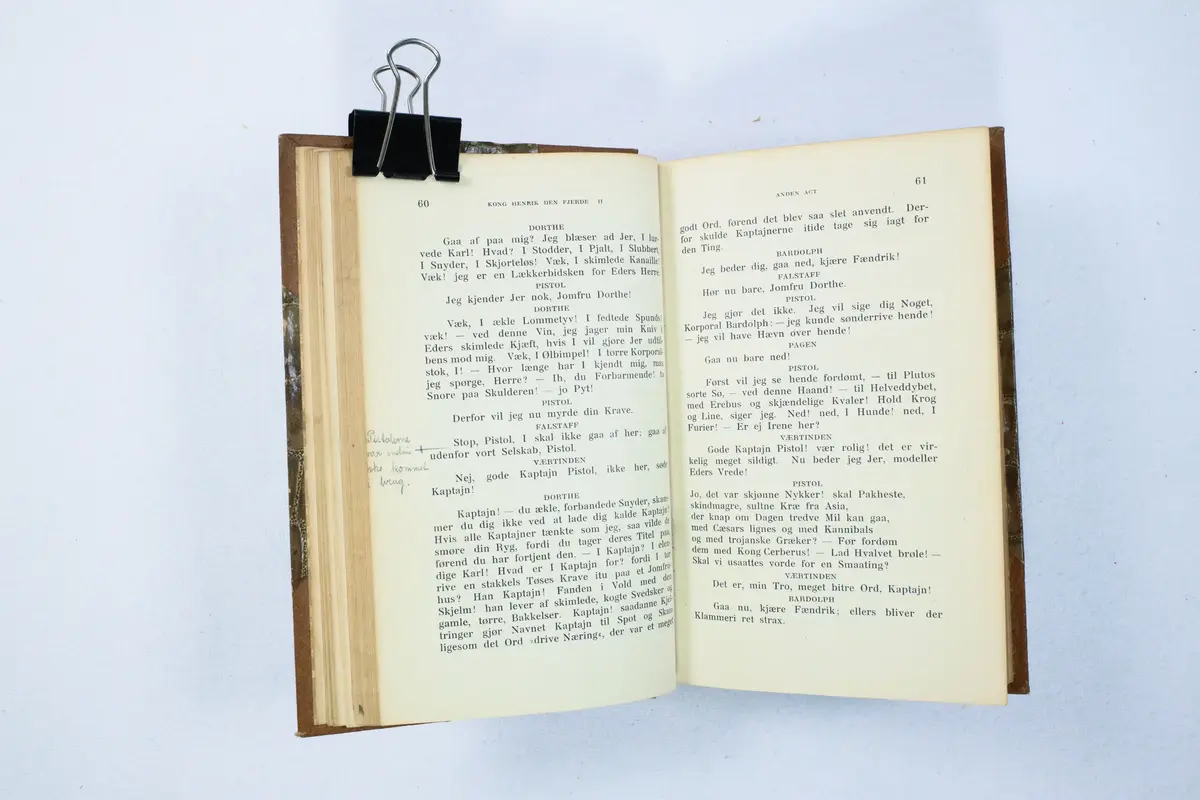 60
KONG HENRIK DEN FJERDE II
DORTHE
Gaa af paa mig? Jeg blæser ad Jer, I lur-
vede Karl! Hvad? I Stodder, I Pjalt, I Slubbert,
I Snyder, I Skjorteløs! Væk, I skimlede Kanaille!
Væk! jeg er en Lækkerbidsken for Eders Herre.
PISTOL
Jeg kjender Jer nok, Jomfru Dorthe!
DORTHE
Væk, I ækle Lommetyv! I fedtede Spunds!
væk! — ved denne Vin, jeg jager min Kniv i
Eders skimlede Kjæft, hvis I vil gjøre Jer udtil-
bens mod mig. Væk, I Ølbimpel! I tørre Korporal-
stok, I! — Hvor længe har I kjendt mig, maa
jeg spørge, Herre? — Ih, du Forbarmende! to
Snore paa Skulderen! — jo Pyt!
PISTOL
Derfor vil jeg nu myrde din Krave.
FALSTAFF
Stop, Pistol, I skal ikke gaa af her; gaa af
udenfor vort Selskab, Pistol.
VÆRTINDEN
Nej, gode Kaptajn Pistol, ikke her, søde
Kaptajn!
DORTHE
Kaptajn! — du ækle, forbandede Snyder, skam-
mer du dig ikke ved at lade dig kalde Kaptajn?
Hvis alle Kaptajner tænkte som jeg, saa vilde de
smøre din Ryg, fordi du tager deres Titel paa,
førend du har fortjent den. — I Kaptajn? I elen-
dige Karl! Hvad er I Kaptajn for? fordi I tør
rive en stakkels Tøses Krave itu paa et Jomfru-
hus? Han Kaptajn! Fanden i Vold med den
Skjelm! han lever af skimlede, kogte Svedsker og
gamle, tørre, Bakkelser. Kaptajn! saadanne Kjel-
tringer gjør Navnet Kaptajn til Spot og Skam
ligesom det Ord »drive Næring«, der var et meget
Pistolerne
var endnu
ikke kommet
i brug.
61
ANDEN ACT
godt Ord, førend det blev saa slet anvendt. Der-
for skulde Kaptajnerne itide tage sig iagt for
den Ting.
BARDOLPH
Jeg beder dig, gaa ned, kjære Fændrik!
FALSTAFF
Hør nu bare, Jomfru Dorthe.
PISTOL
Jeg gjør det ikke. Jeg vil sige dig Noget,
Korporal Bardolph: — jeg kunde sønderrive hende!
— jeg vil have Hævn over hende!
PAGEN
Gaa nu bare ned!
PISTOL
Først vil jeg se hende fordømt, — til Plutos
sorte Sø, — ved denne Haand! — til Helveddybet,
med Erebus og skjændelige Kvaler! Hold Krog
og Line, siger jeg. Ned! ned, I Hunde! ned, I
Furier! — Er ej Irene her?
VÆRTINDEN
Gode Kaptajn Pistol! vær rolig! det er vir-
kelig meget sildigt. Nu beder jeg Jer, modeller
Eders Vrede!
PISTOL
Jo, det var skjønne Nykker! skal Pakheste,
skindmagre, sultne Kræ fra Asia,
der knap om Dagen tredve Mil kan gaa,
med Cæsars lignes og med Kannibals
og med trojanske Græker? — Før fordøm
dem med Kong Cerberus! — Lad Hvalvet brøle! —
Skal vi usaattes vorde for en Smaating?
VÆRTINDEN
Det er, min Tro, meget bitre Ord, Kaptajn!
BARDOLPH
Gaa nu, kjære Fændrik; ellers bliver der
Klammeri ret strax.